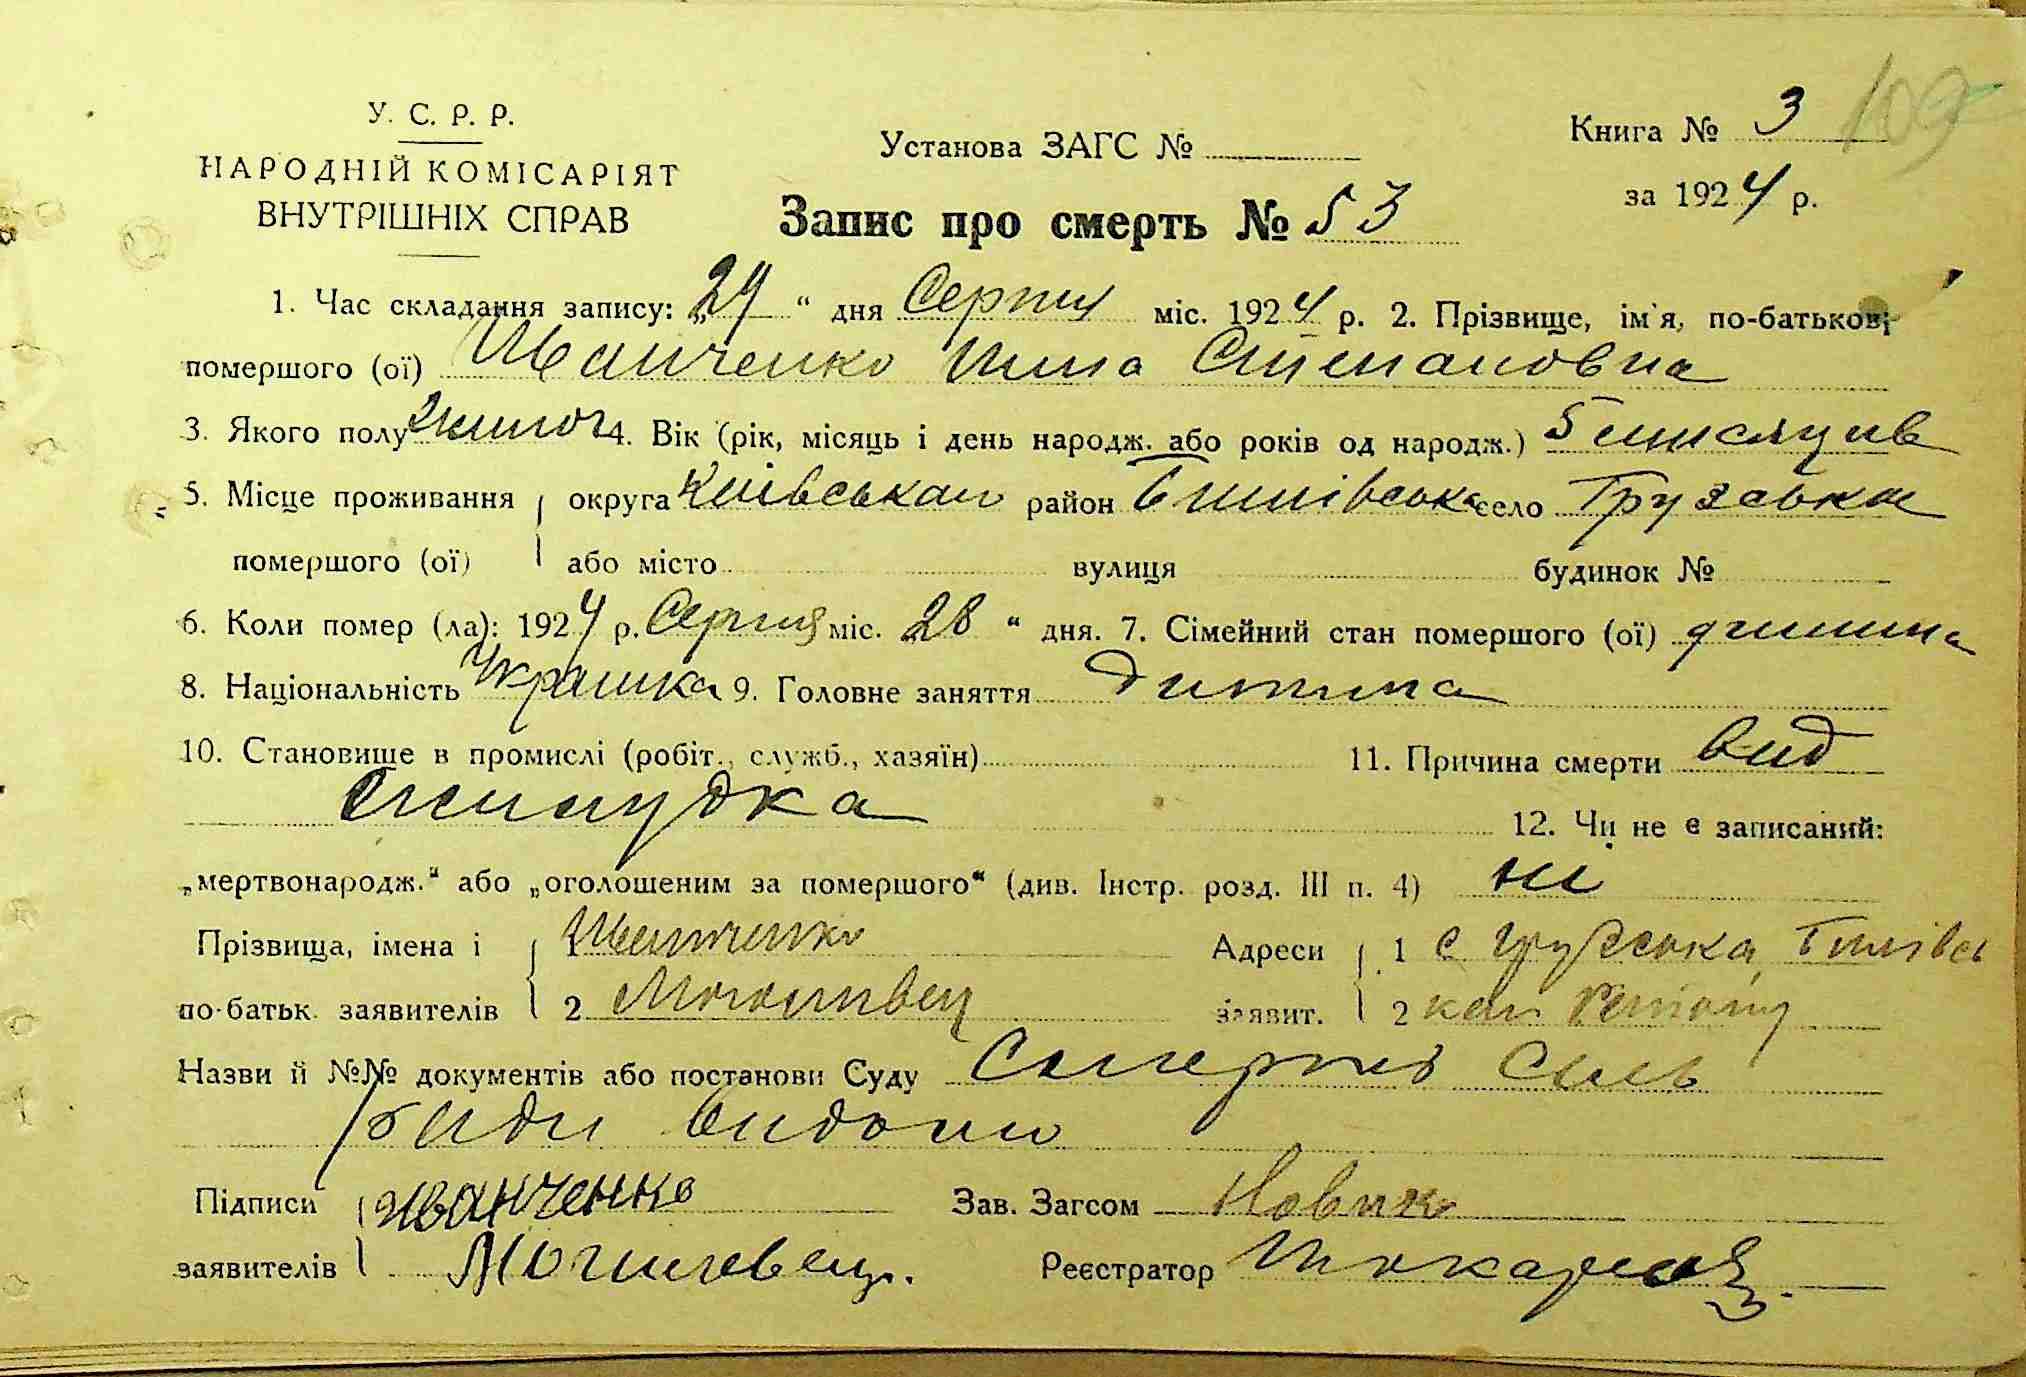 109
У. С. Р. Р.
НАРОДНІЙ КОМІСАРІЯТ
ВНУТРІШНІХ СПРАВ
Установа ЗАГС №
Книга № 3
за 1924 р.
Запис про смерть № 53
1. Час складання запису: „29 “ дня Серпня міс. 1924 р. 2. Прізвище, ім'я, по-батькові
помершого (ої) Иванченко Нина Степановна
3. Якого полу жиноч 4. Вік (рік, місяць і день народж. або років од народж.) 5 мисяцив
5. Місце проживання округа Київськои район село Грузська
помершого (ої) або місто вулиця будинок №
6. Коли помер (ла): 1924 р. Серпня міс. 28 “ дня. 7. Сімейний стан помершого (ої) дитина
8. Національність Украинка 9. Головне заняття дитина
10. Становище в промислі (робіт., служб., хазяїн) 11. Причина смерти вид
12. Чи не є записаний:
„мертвонародж.“ або „оголошеним за помершого“ (див. Інстр. розд. III п. 4) ні
Прізвища, імена і 1 Иванченко Адреси 1 с Грузська
по-батьк. заявителів 2 заявит. 2
Назви й №№ документів або постанови Суду Силь
Ради
Підписи Иванченко Зав. Загсом Новик
заявителів Могилевец. Реєстратор